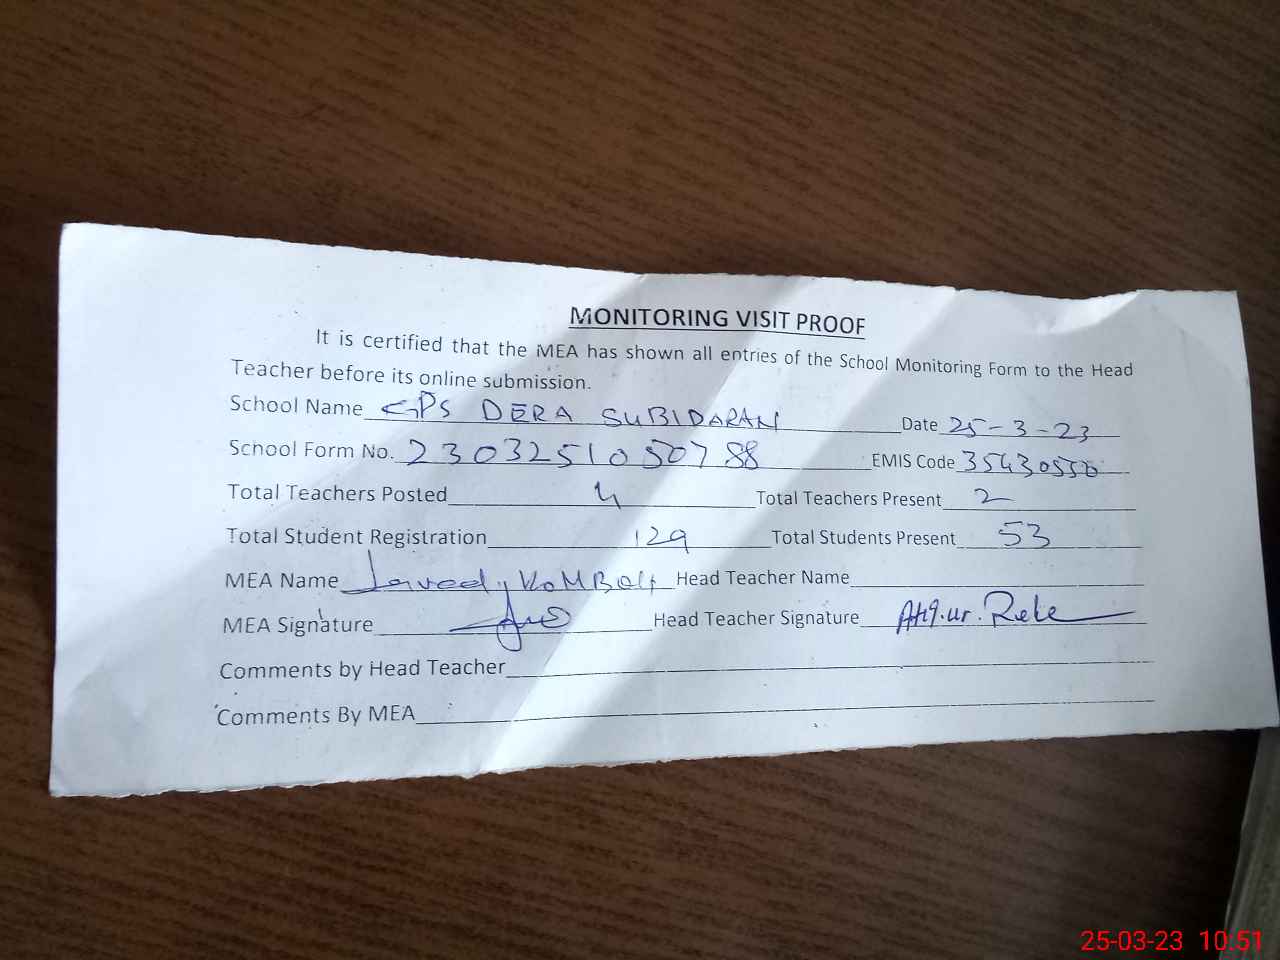 MONITORING VISIT PROOF
It is certified that the MEA has shown all entries of the School Monitoring Form to the Head
Teacher before its online submission.
School Name GPS DERA SUBIDARAN Date 25-3-23
School Form No. 230325105078 EMIS Code 35430550
Total Teachers Posted 4 Total Teachers Present 2
Total Student Registration 129 Total Students Present 53
MEA Name Javed Head Teacher Name
MEA Signature Head Teacher Signature Atiq.ur.
Comments by Head Teacher
Comments By MEA
25-03-23 10:51